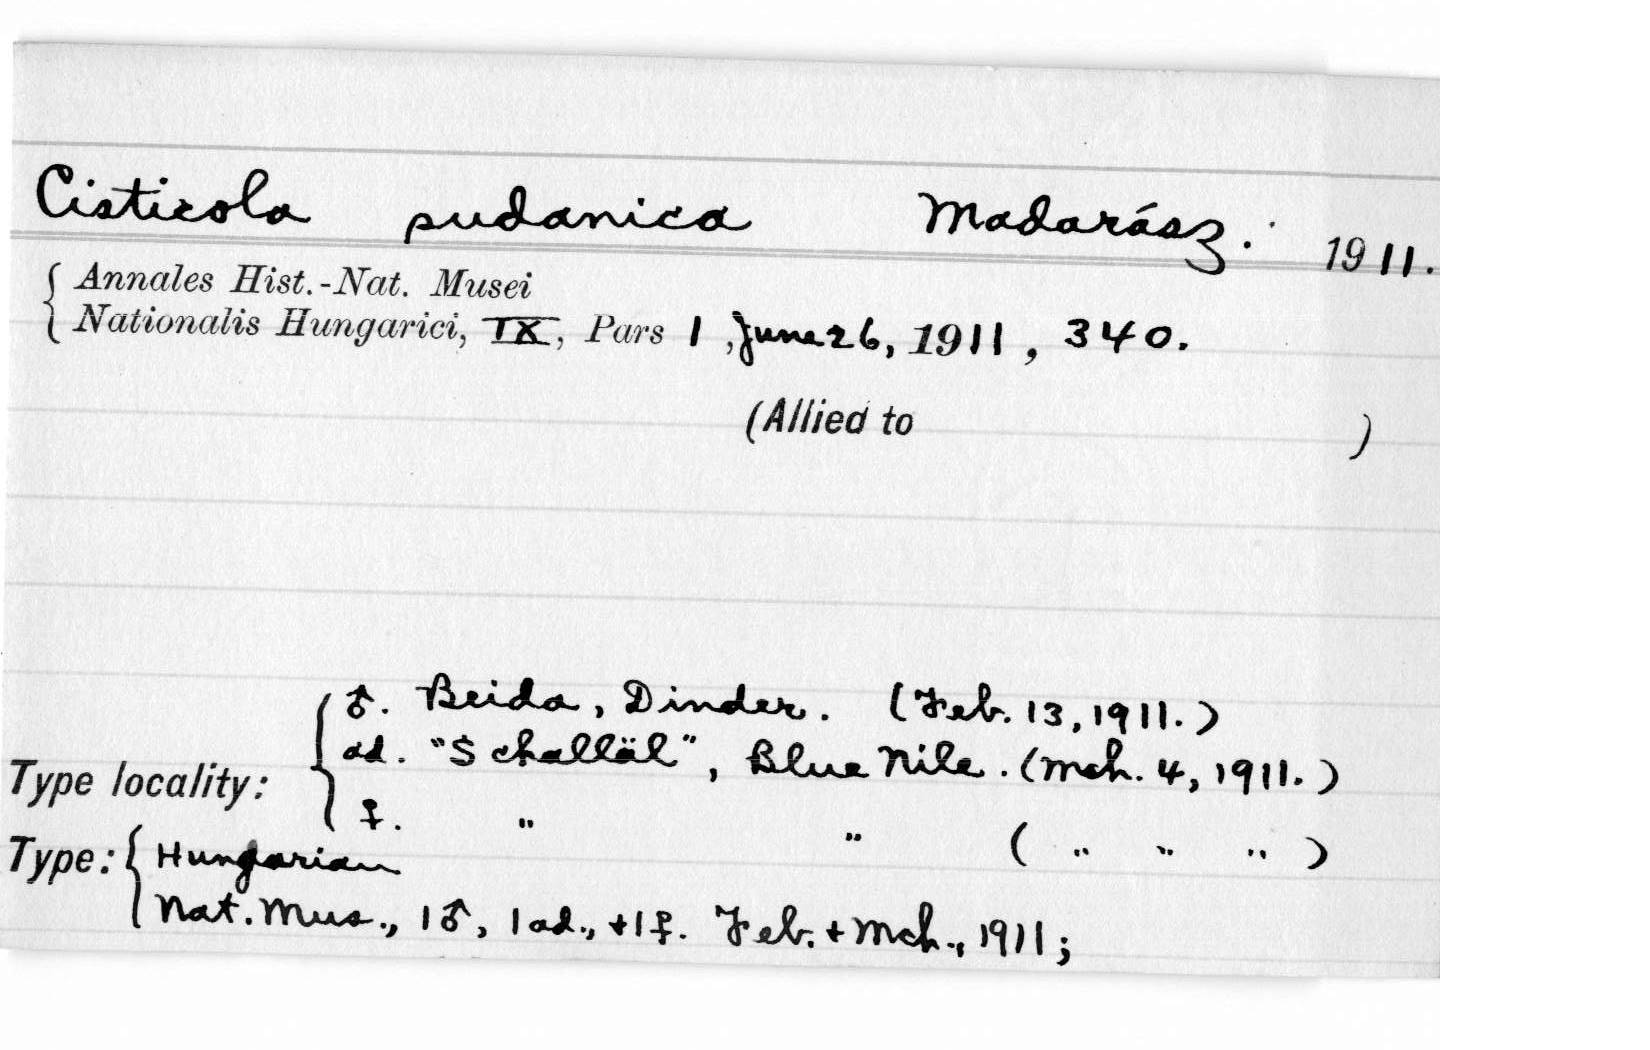 Cisticola sudanica Madarász. 1911.
Annales Hist.-Nat. Musei
Nationalis Hungarici, IX, Pars 1, June 26, 1911, 340.
(Allied to )
♂. Beida, Dinder. (Feb. 13, 1911.)
ad. "Schalläl", Blue Nile. (Mch. 4, 1911.)
Type locality:
♀. " " ( " " " )
Type: Hungarian
Nat. Mus., 1♂, 1 ad., +1♀. Feb. + Mch., 1911;